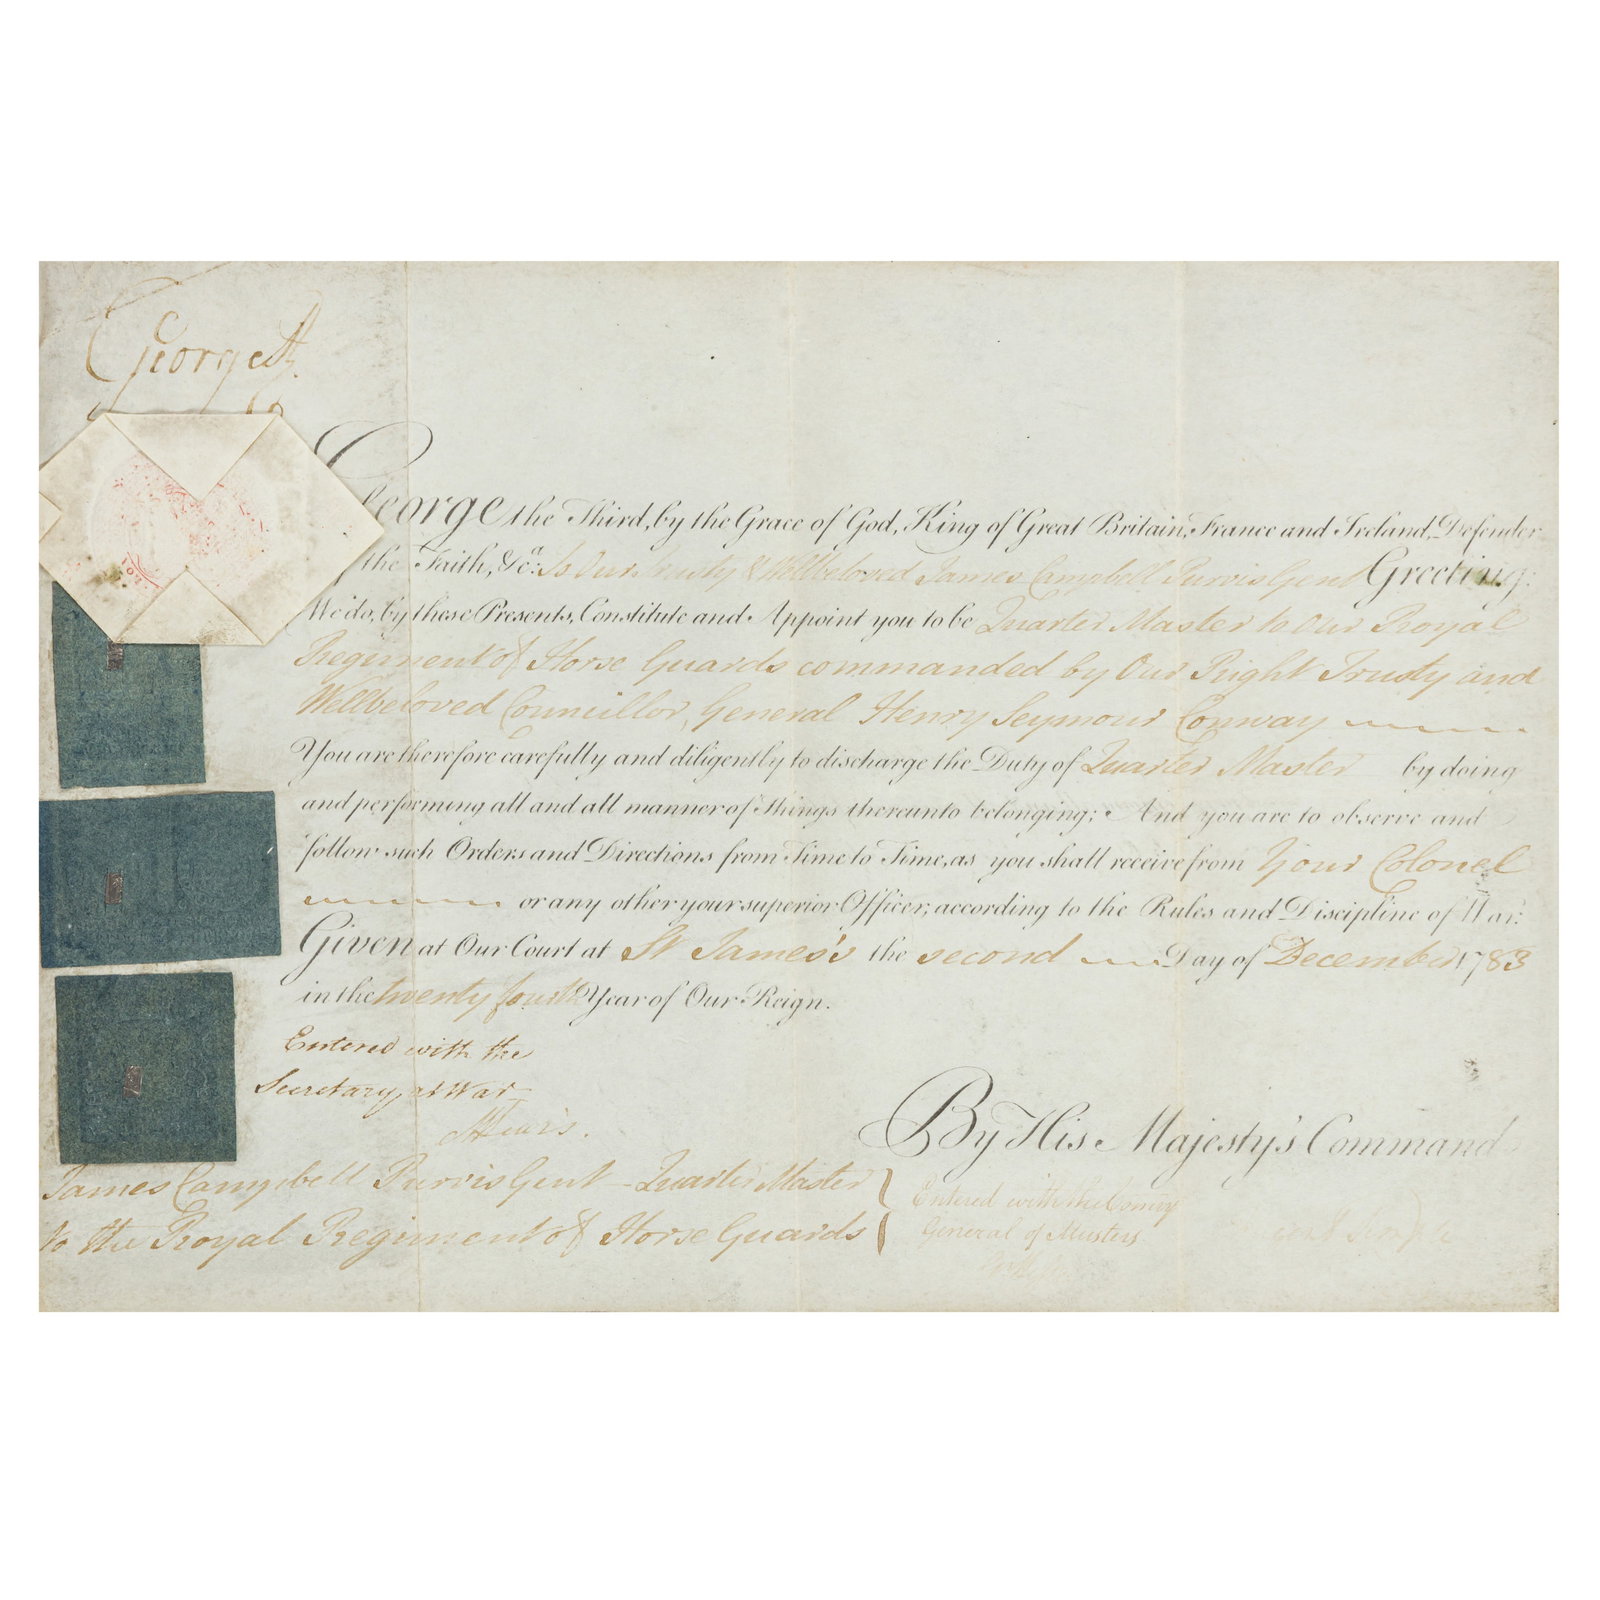 George R
George the Third, by the Grace of God, King of Great Britain, France and Ireland, Defender
the Faith, &c.a To Our Trusty & Wellbeloved James Campbell Purvis Gent Greeting:
We do, by these Presents, Constitute and Appoint you to be Quarter Master to Our Royal
Regiment of Horse Guards commanded by Our Right Trusty and
Wellbeloved Councillor, General Henry Seymour Conway
You are therefore carefully and diligently to discharge the Duty of Quarter Master by doing
and performing all and all manner of Things thereunto belonging; And you are to observe and
follow such Orders and Directions from Time to Time, as you shall receive from Your Colonel
or any other your superior Officer, according to the Rules and Discipline of War:
Given at Our Court at St James's the second Day of December 1783
in the twenty fourth Year of Our Reign.
Entered with the
Secretary at War
By His Majesty's Command
James Campbell Purvis Gent - Quarter Master
to the Royal Regiment of Horse Guards
Entered with the Comry
General of Musters